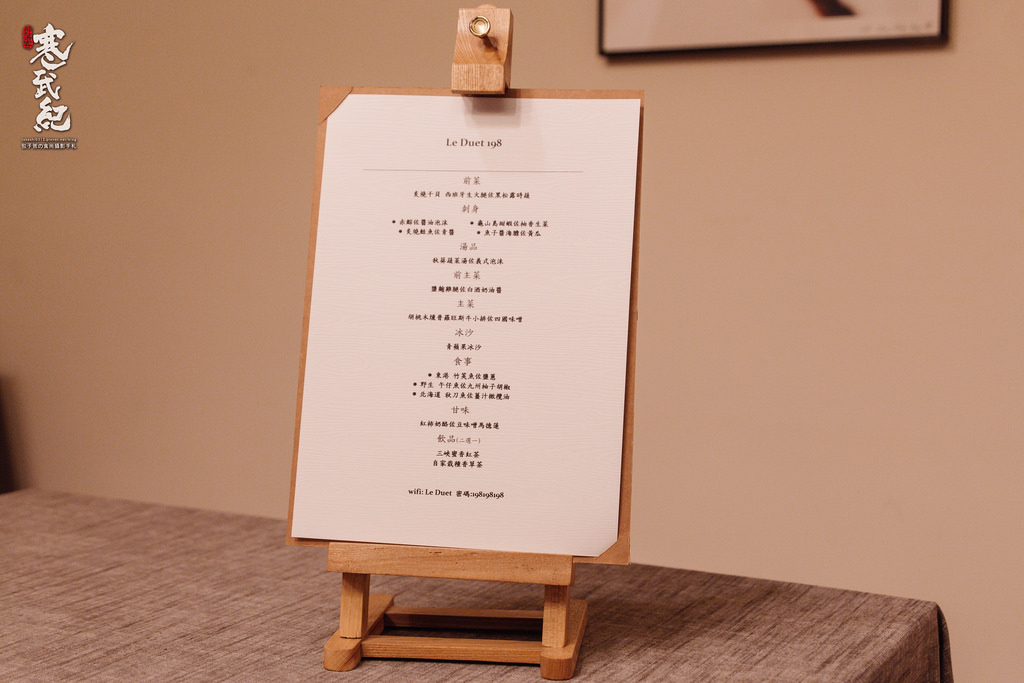 寒武紀
包子爸の食尚攝影手札
Le Duet 198
前菜
炙燒干貝 西班牙生火腿佐黑松露時蔬
刺身
• 赤鯥佐醬油泡沫 • 龜山島甜蝦佐柚香生菜
• 炙燒鮭魚佐青醬 • 魚子醬海膽佐黃瓜
湯品
秋葵蔬菜湯佐義式泡沫
前主菜
鹽麴雞腿佐白酒奶油醬
主菜
胡桃木燻普羅旺斯牛小排佐四國味噌
冰沙
青蘋果冰沙
食事
• 東港 竹筴魚佐鹽蔥
• 野生 午仔魚佐九州柚子胡椒
• 北海道 秋刀魚佐薑汁橄欖油
甘味
紅柿奶酪佐豆味噌馬德蓮
飲品(二選一)
三峽蜜香紅茶
自家栽種香草茶
wifi: Le Duet 密碼:198198198